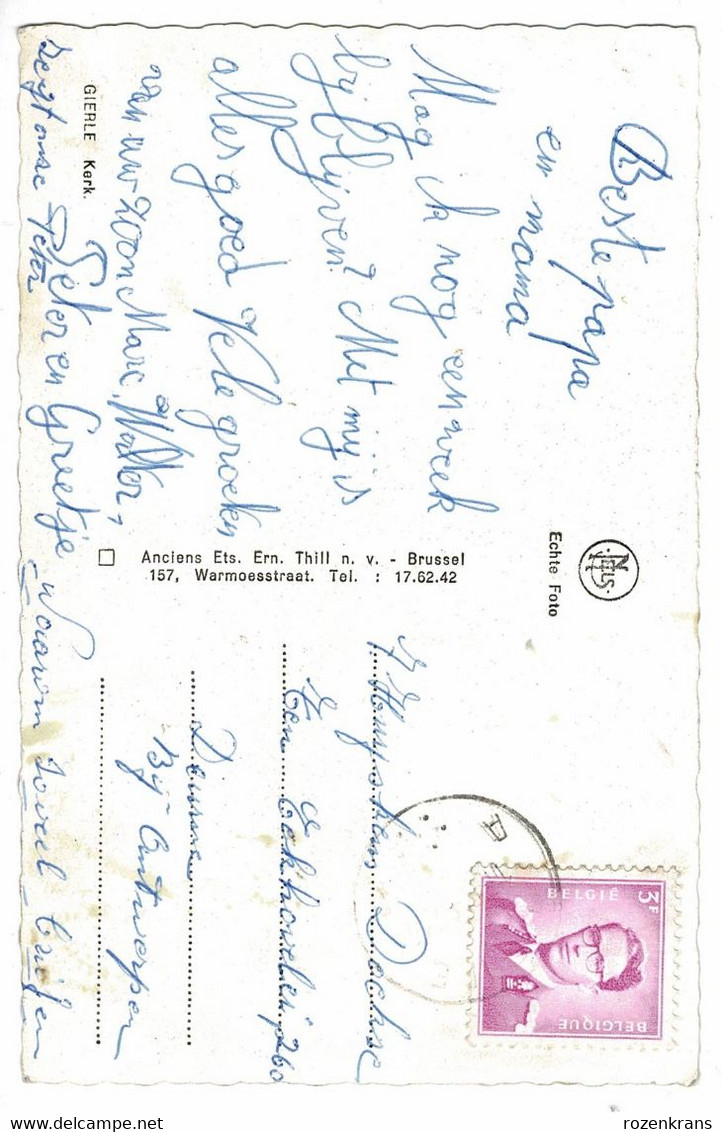 Beste papa
en mama
Mag ik nog een week
bij blijven? Met mij is
alles goed Vele groeten
van uw zoon Marc, Walter,
Peter en Greetje
zegt onze Peter
Waarom zoveel
GIERLE Kerk.
Anciens Ets. Ern. Thill n. v. - Brussel
157, Warmoesstraat. Tel. : 17.62.42
Echte Foto
NELS
Deckse
260
Deurne
Bij Antwerpen
3F
BELGIË
BELGIQUE
delcampe.net
rozenkrans